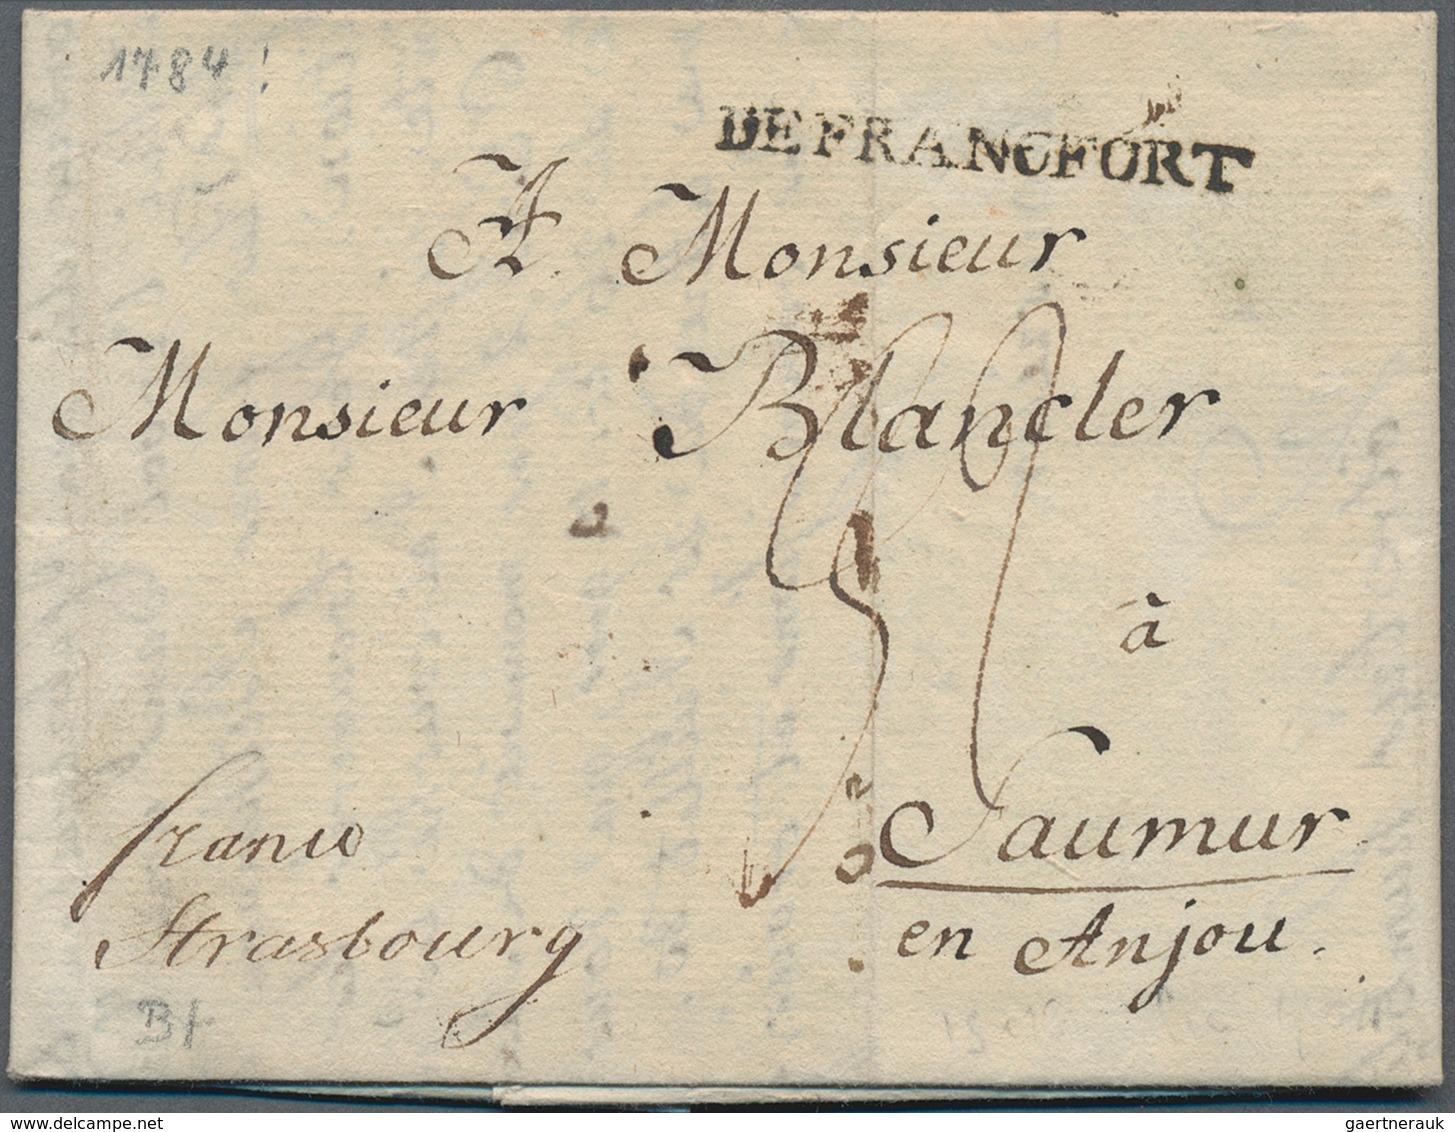 1784!
DE FRANCFORT
A Monsieur
Monsieur Blancler
à
Saumur
en Anjou.
franco
Strasbourg
gaertnerauk